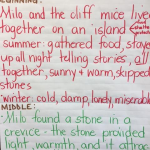 Milo and the cliff mice lived
together on an island
Summer: gathered food, stayed
up all night telling stories, all
together, sunny & warm, skipped
stones
winter: cold, damp, lonely, miserable
MIDDLE:
Milo found a stone in a
crevice - the stone provided
light, warmth, and it attrac